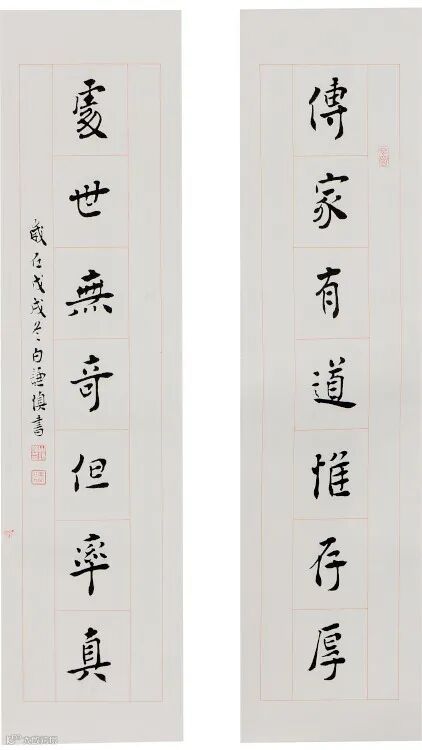 傳家有道惟存厚
處世無奇但率真
歲在戊戌冬白謙慎書